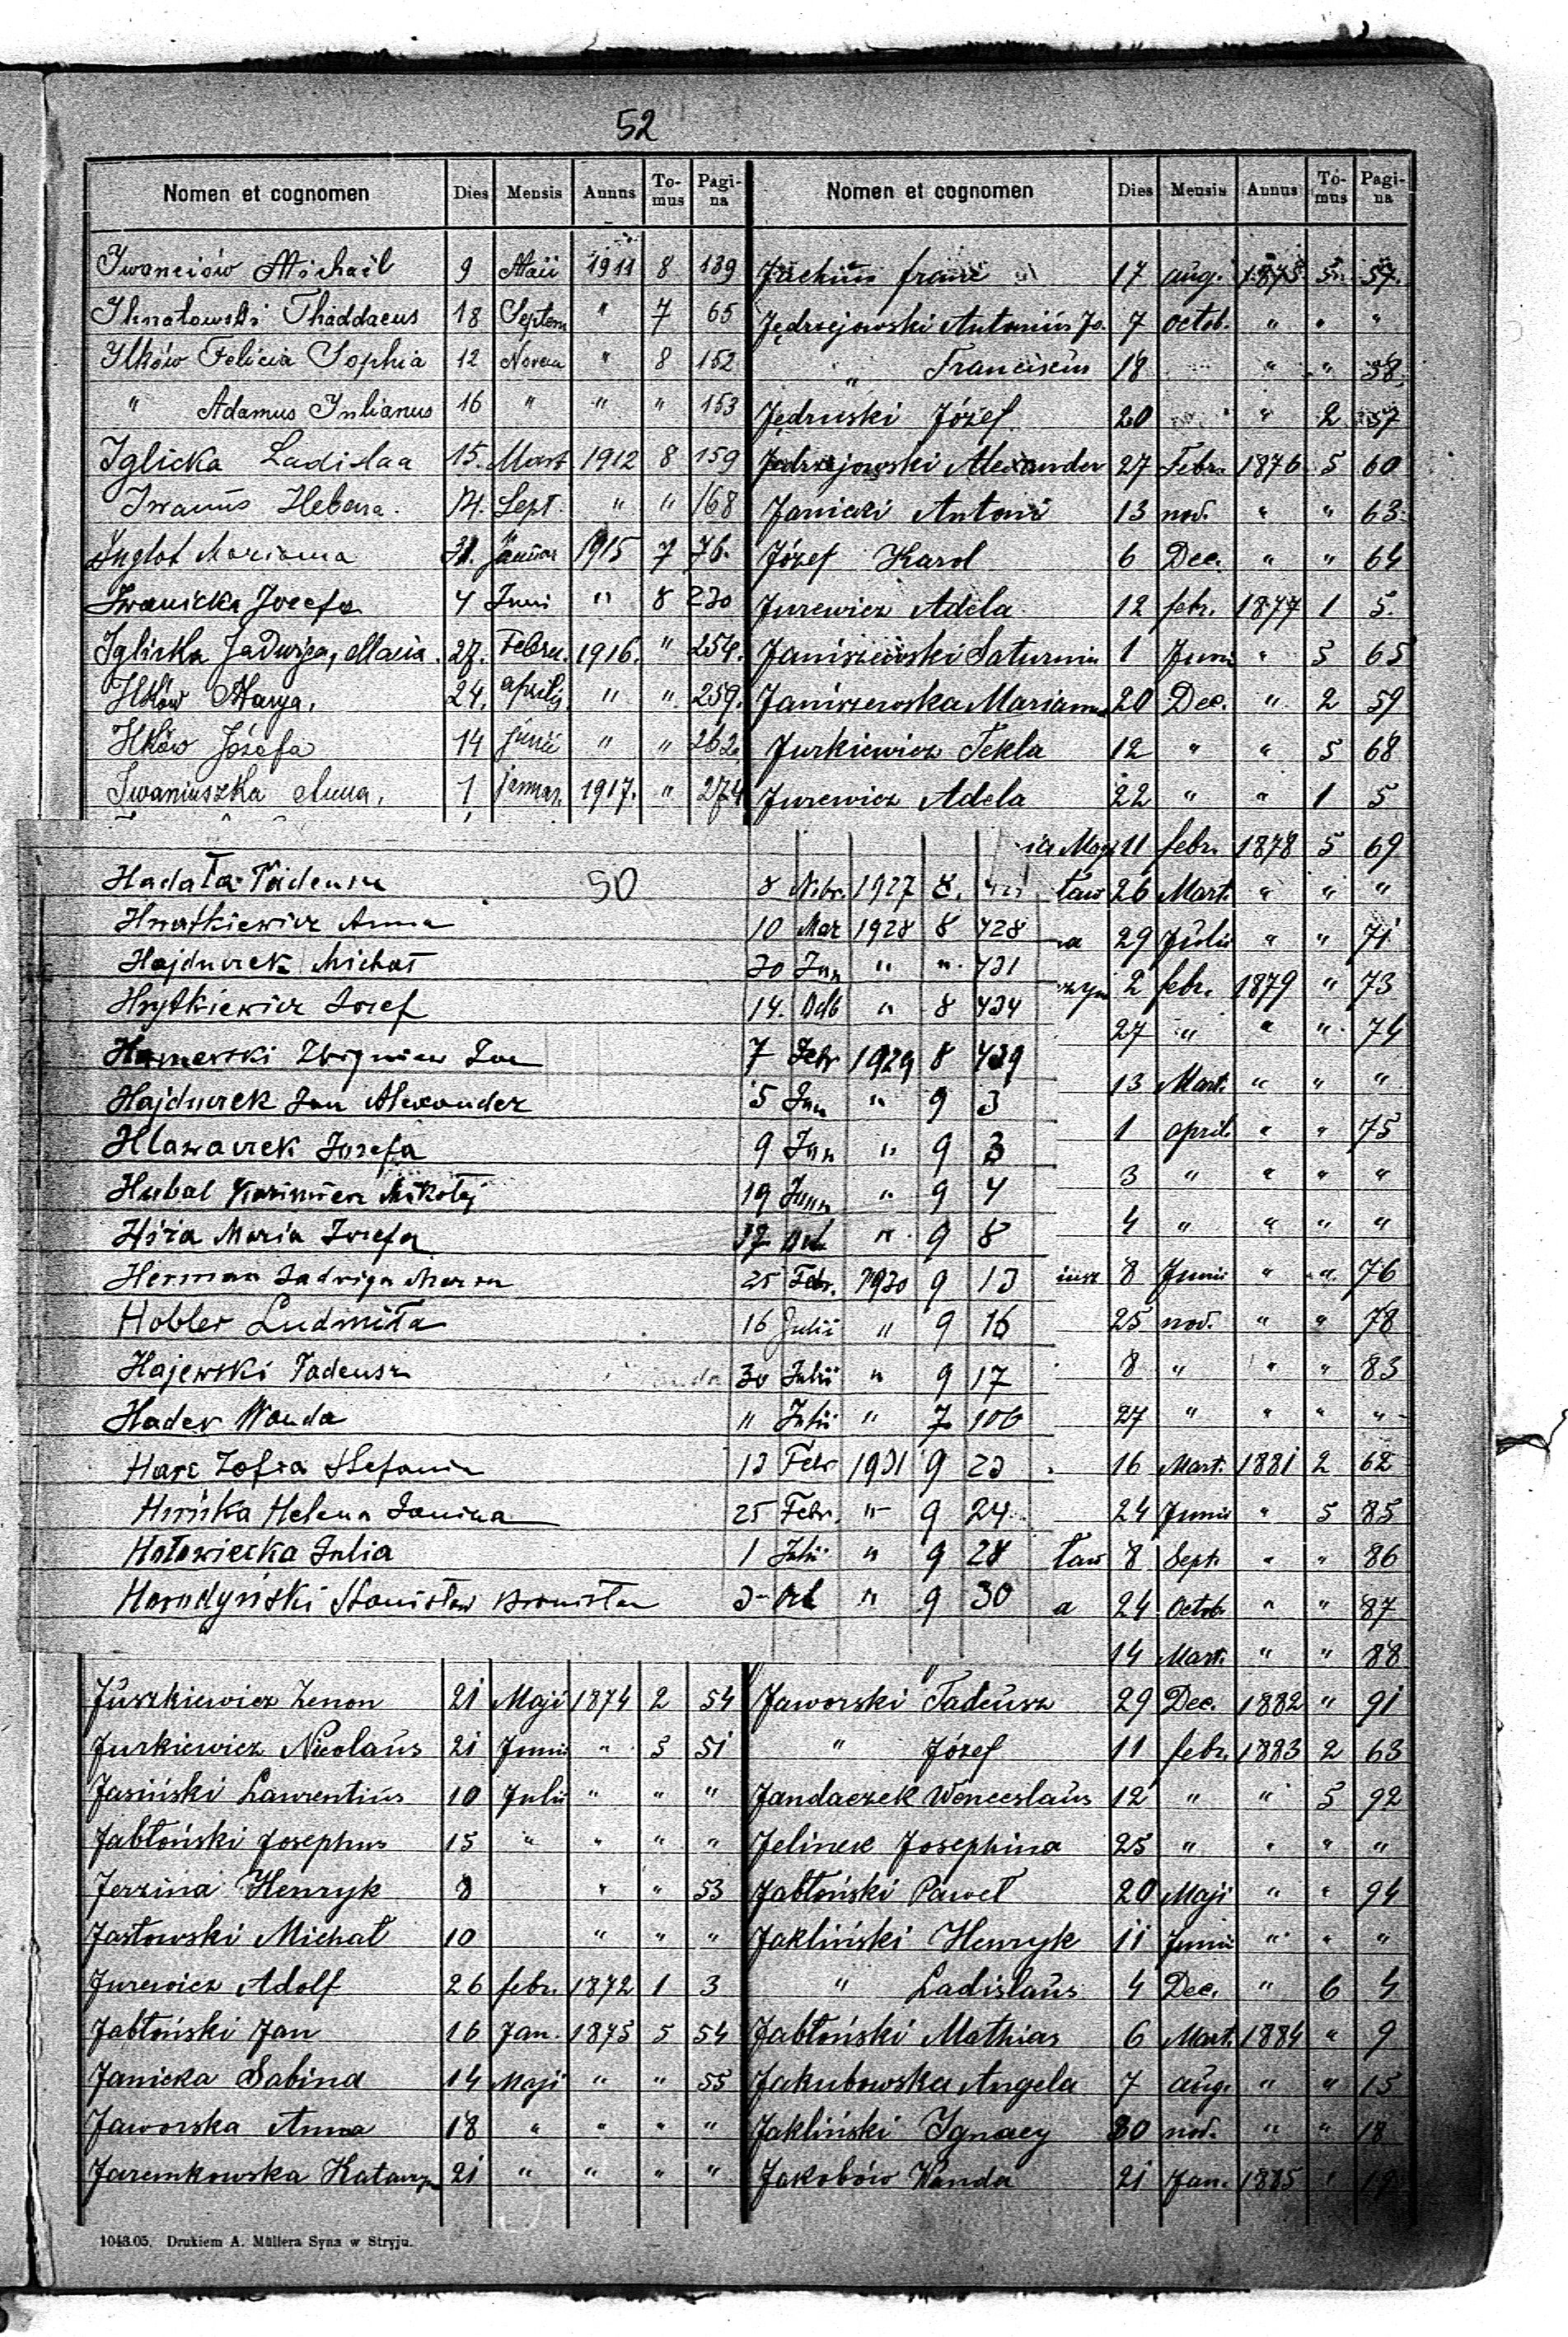 52
Nomen et cognomen Dies Mensis Annus To-mus Pagi-na
Iwanciów Michaël 9 Maii 1911 8 139
Ihnatowski Thaddaeus 18 Septem " 7 65
Ilków Felicia Sophia 12 Novem " 8 152
" Adamus Julianus 16 " " " 153
Iglicka Ladislaa 15. Mart 1912 8 159
Iwanus Helena. 14. Sept. " " 168
Inglot Marianna 31. Januar 1915 7 76.
Iwanicka Josefa 4 Juni " 8 230
Iglicka Jadwiga, Maria. 27. Febru. 1916. " 254.
Ilków Marya. 24. aprilis " " 259.
Ilków Józefa 14 junii " " 262.
Iwaniuszka Anna. 1 januar. 1917. " 274
Nomen et cognomen Dies Mensis Annus To-mus Pagi-na
Jachim franc 17 aug. 1875 5 57.
Jędrzejowski Antonius Jo. 7 octob. " " "
" Franciscus 18 " " 58
Jędruski Józef 20 " 2 57
Jędrzejowski Alexander 27 Febr. 1876 5 60
Janicki Antoni 13 nov. " " 63
Józef Karol 6 Dec. " " 64
Jurewicz Adela 12 febr. 1877 1 5.
Janiszewski Saturnin 1 Junii " 5 65
Janiszewska Marianna 20 Dec. " 2 59
Jurkiewicz Tekla 12 " " 5 68
Jurewicz Adela 22 " " 1 5
Mary 11 febr. 1878 5 69
ław 26 Mart. " " "
a 29 Julii " " 71
zyn 2 febr. 1879 " 73
27 " " " 74
13 Mart. " " "
1 april. " " 75
3 " " " "
4 " " " "
iusz 8 Junii " " 76
25 nov. " " 78
8 " " " 83
27 " " " "
16 Mart. 1881 2 62
24 Junii " 5 85
ław 8 Sept. " " 86
a 24 Octob. " " 87
14 Mart. " " 88
50
Hadała Tadeusz 8 Nbr. 1927 8.
Hnatkiewicz Anna 10 Mar 1928 8 428
Hajduczek Michał 30 Jun " " 431
Hrytkiewicz Josef 14. Octb " 8 434
Hamerski Zbigniew Jan 7 Febr 1929 8 439
Hajduczek Jan Alexander 5 Jun " 9 3
Hlawaczek Josefa 9 Jun " 9 3
Hubal Kazimierz Mikołaj 19 Junn " 9 4
Maria Josefa Oct " 9 8
Herman Jadwiga Maria 25 Febr. 1930 9 13
Hobler Ludmiła 16 Julii " 9 16
Hajewski Tadeusz 30 Julii " 9 17
Hader Wanda " Julii " 7 106
Harc Zofia Stefania 13 Febr 1931 9 23
Helena Janina 25 Febr. " 9 24
Hołowiecka Julia 1 Julii " 9 28
Horodyński Stanisław Bronisław 3 Oct " 9 30
Juszkiewicz Zenon 21 Maji 1874 2 54
Jurkiewicz Nicolaus 21 Junii " 5 51
Jasiński Laurentius 10 Julii " " "
Jabłoński Josephus 15 " " " "
Jerzina Henryk 8 " " 53
Jastowski Michał 10 " " "
Jurewicz Adolf 26 febr. 1872 1 3
Jabłoński Jan 16 Jan. 1875 5 54
Janicka Sabina 14 Maji " " 55
Jaworska Anna 18 " " " "
Jaremkowska Katarzy 21 " " " "
Jaworski Tadeusz 29 Dec. 1882 " 91
" Józef 11 febr. 1883 2 63
Jandaczek Wenceslaus 12 " " 5 92
Jelinek Josephina 25 " " " "
Jabłoński Paweł 20 Maji " " 94
Jakliński Henryk 11 Junii " " "
" Ladislaus 4 Dec. " 6 4
Jabłoński Mathias 6 Mart. 1884 " 9
Jakubowska Angela 7 aug. " " 15
Jakliński Ignacy 30 nov. " " 18
Jakobów Wanda 21 Jan. 1885 " 19
1043.05. Drukiem A. Müllera Syna w Stryju.